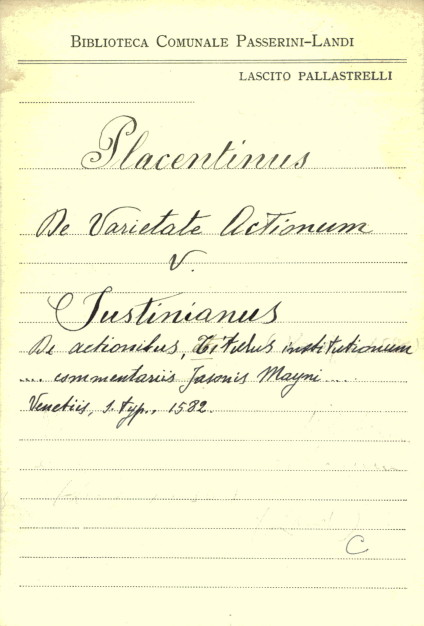 BIBLIOTECA COMUNALE PASSERINI-LANDI
LASCITO PALLASTRELLI
Placentinus
De Varietate Actionum
V.
Justinianus
De actionibus, Titulus institutionum
.... commentariis Jasonis Mayni ....
Venetiis, s. typ., 1582.
C